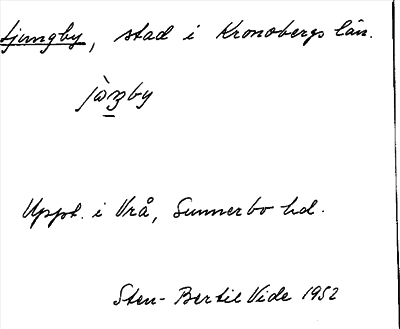 Ljungby, stad i Kronobergs län.
Uppt. i Vrå, Sunnerbo hd.
Sten-Bertil Vide 1952